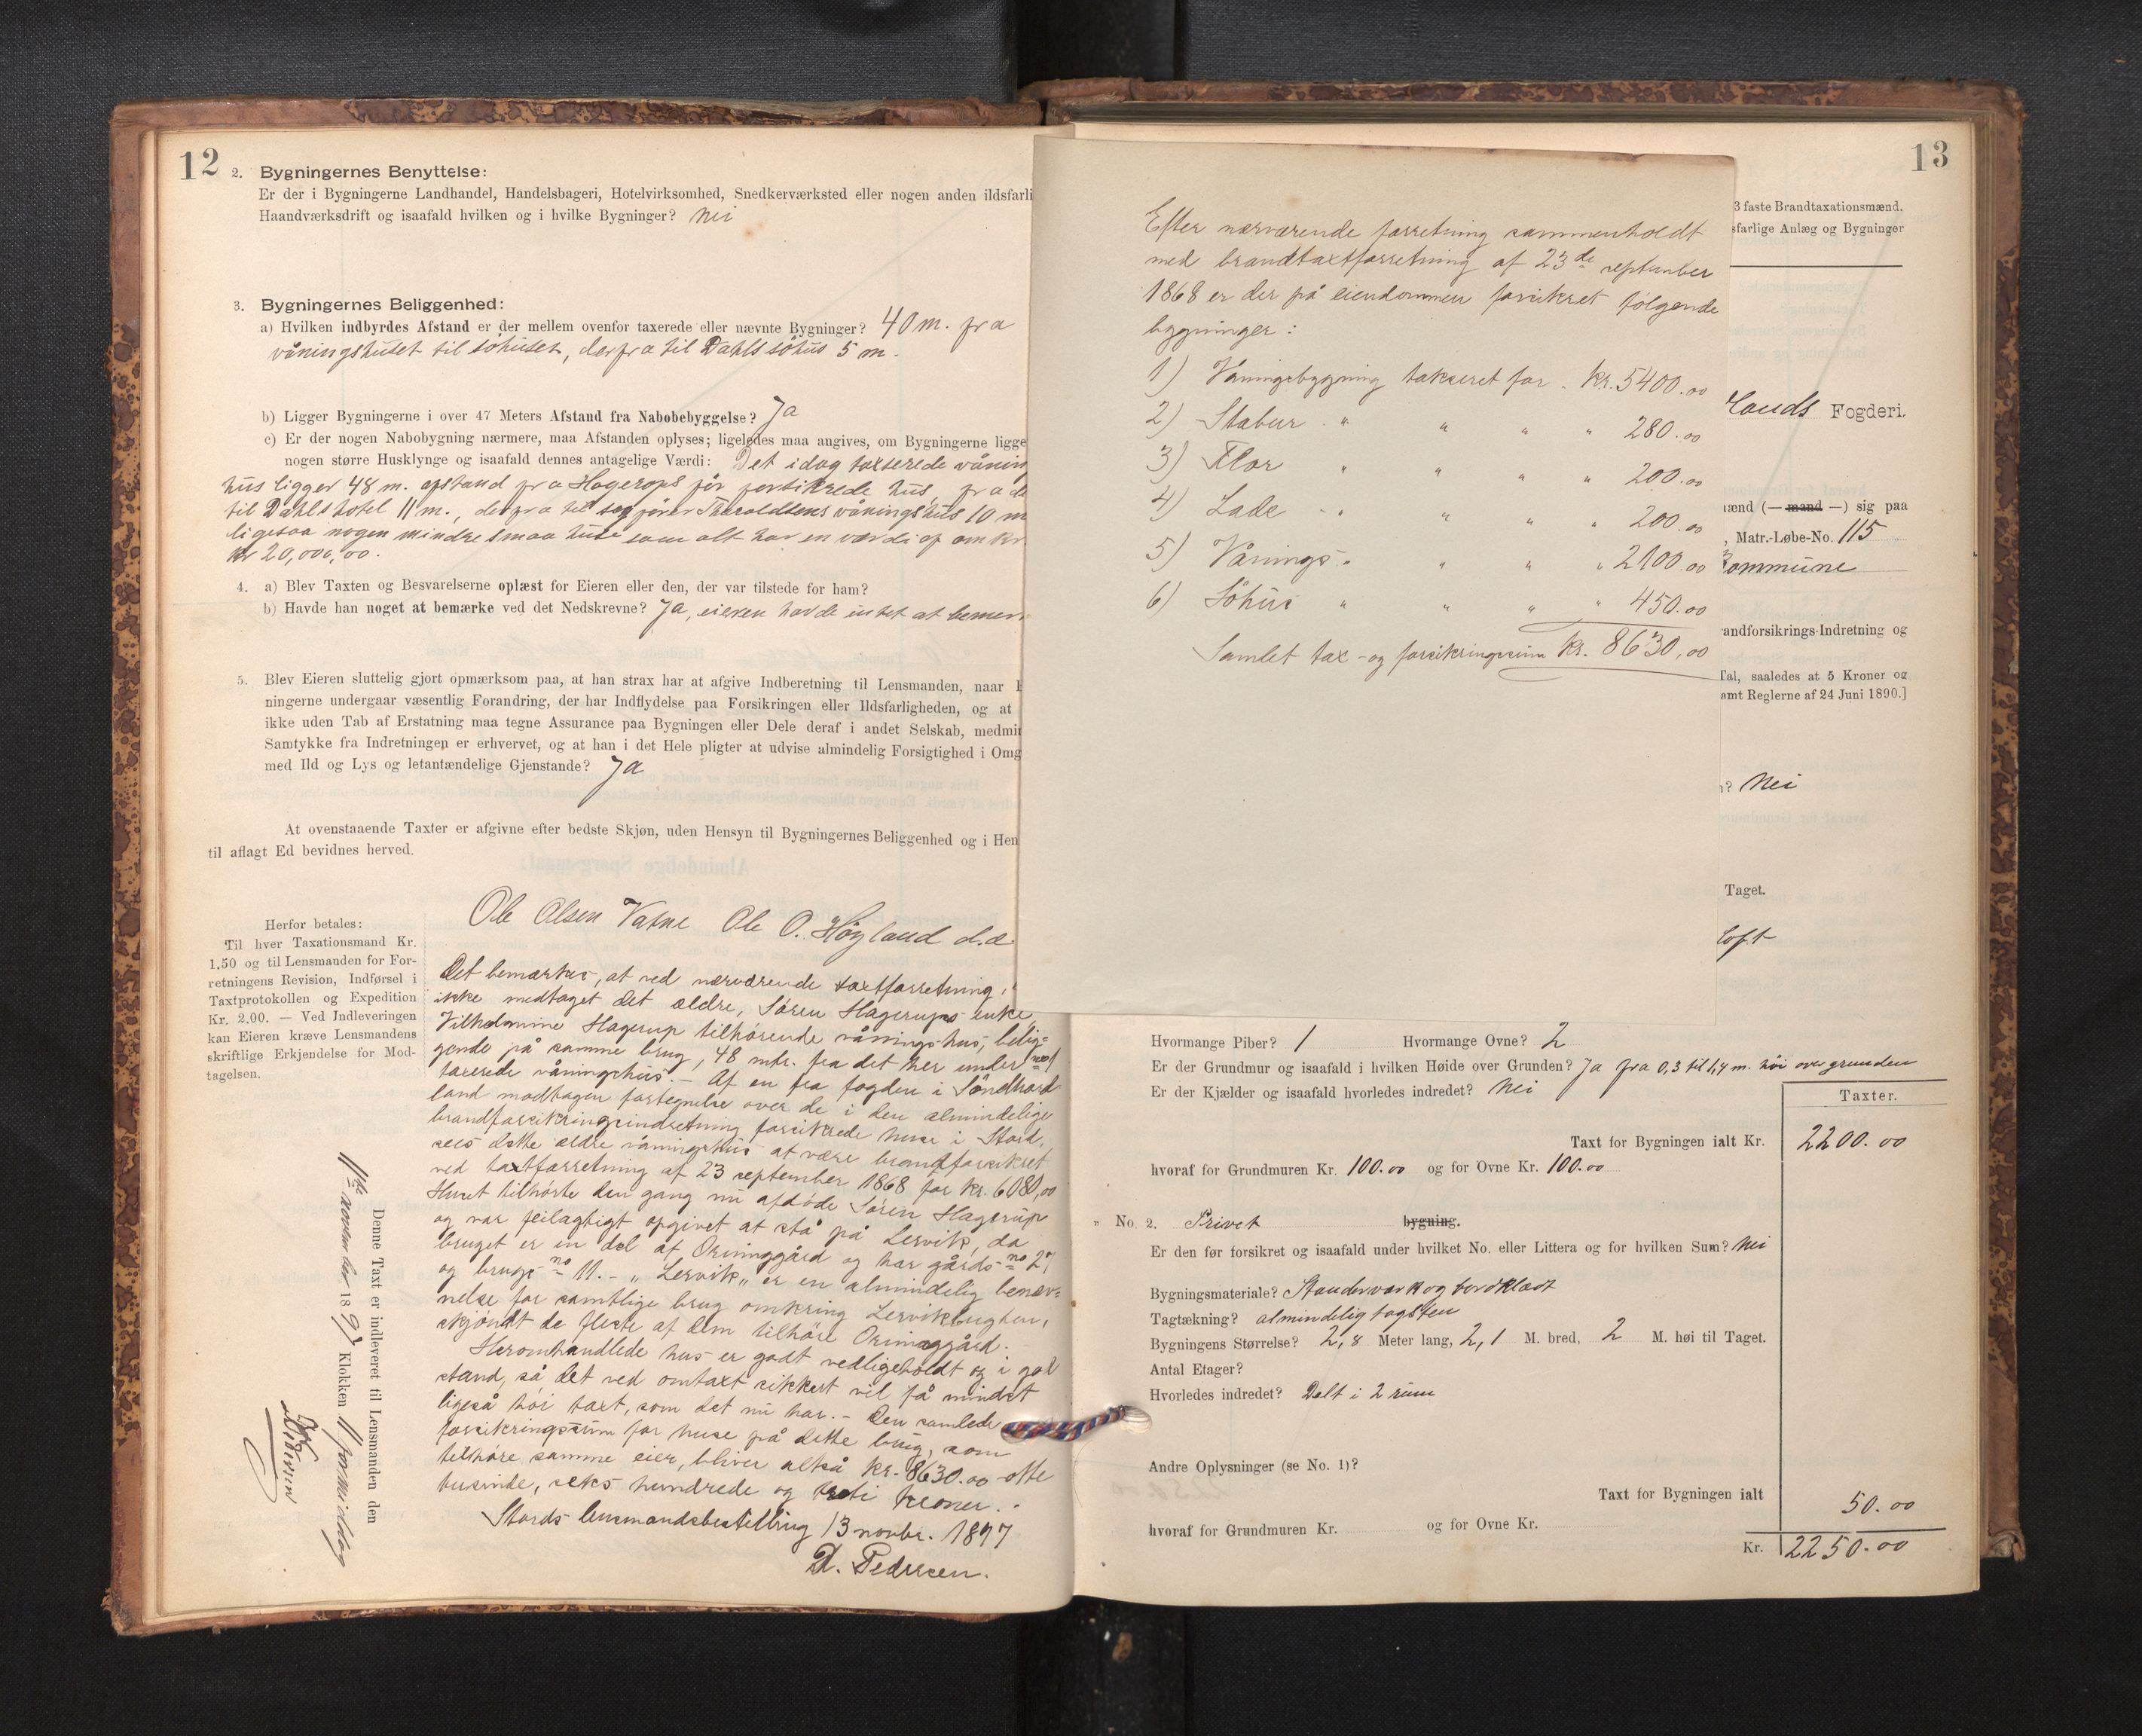 12
2. Bygningernes Benyttelse:
Er der i Bygningerne Landhandel, Handelsbageri, Hotelvirksomhed, Snedkerværksted eller nogen anden ildsfarli
Haandværksdrift og isaafald hvilken og i hvilke Bygninger? Nei
3. Bygningernes Beliggenhed:
a) Hvilken indbyrdes Afstand er der mellem ovenfor taxerede eller nævnte Bygninger? 40 m. fra
våningshuset til söhuset, derfra til Dahls söhus 5 m.
b) Ligger Bygningerne i over 47 Meters Afstand fra Nabobebyggelse? Ja
c) Er der nogen Nabobygning nærmere, maa Afstanden oplyses; ligeledes maa angives, om Bygningerne ligge
nogen større Husklynge og isaafald dennes antagelige Værdi: Det idag taxterede våning
hus ligger 48 m. afstand fra Hagerups för forsikrede hus, fra de
til Dahls hotel 11 m., derfra til Thoroldtsens våningshus 10 m
ligesaa nogen mindre smaa huse som alt har en værdi af om kr
kr 20,000,00.
4. a) Blev Taxten og Besvarelserne oplæst for Eieren eller den, der var tilstede for ham?
b) Havde han noget at bemærke ved det Nedskrevne? Ja, eieren havde intet at bemer
5. Blev Eieren sluttelig gjort opmærksom paa, at han strax har at afgive Indberetning til Lensmanden, naar
ningerne undergaar væsentlig Forandring, der har Indflydelse paa Forsikringen eller Ildsfarligheden, og at
ikke uden Tab af Erstatning maa tegne Assurance paa Bygningen eller Dele deraf i andet Selskab, medmin
Samtykke fra Indretningen er erhvervet, og at han i det Hele pligter at udvise almindelig Forsigtighed i Omg
med Ild og Lys og letantændelige Gjenstande? Ja
At ovenstaaende Taxter er afgivne efter bedste Skjøn, uden Hensyn til Bygningernes Beliggenhed og i Hen
til aflagt Ed bevidnes herved.
Ole Olsen Vatne Ole O. Høyland
Herfor betales:
Til hver Taxationsmand Kr.
1.50 og til Lensmanden for For-
retningens Revision, Indførsel i
Taxtprotokollen og Expedition
Kr. 2.00. — Ved Indleveringen
kan Eieren kræve Lensmandens
skriftlige Erkjendelse for Mod-
tagelsen.
Det bemærkes, at ved nærværende taxtforretning,
ikke medtaget det ældre, Sören Hagerups enke,
Vilhelmine Hagerup tilhörende våningshus, belig-
gende på samme brug, 48 mtr. fra det her under no 1
taxerede våningshus. — Af en fra fogden i Söndhord
land modtagen fortegnelse over de i den almindelige
brandforsikringsindretning forsikrede huse i Stord,
sees dette ældre våningshus at være brandforsikret
ved taxtforretning af 23 september 1868 for kr. 6080,00
Huset tilhörte den gang nu afdöde Sören Hagerup
og var feilagtigt opgivet at stå på Lervik, da
bruget er en del af Orninggård og har gårds no 27
og brugs no 11. — „Lervik„ er en almindelig benæv-
nelse for samtlige brug omkring Lervikbugten,
skjöndt de fleste af dem tilhöre Orninggård.
Heromhandlede hus er godt vedligeholdt og i god
stand, så det ved omtaxt sikkert vil få mindst
ligeså höi taxt, som det nu har. — Den samlede
forsikringssum for huse på dette brug, som
tilhöre samme eier, bliver altså kr. 8630.00 otte
tusinde, seks hundrede og treti kroner. —
Stords lensmandsbestilling 13 novbr. 1897
D. Pedersen.
Denne Taxt er indleveret til Lensmanden den
11te november 1897 Klokken 11 formiddag
D Pedersen
Efter nærværende forretning sammenholdt
med brandtaxtforretning af 23de september
1868 er der på eiendommen forsikret følgende
bygninger:
1) Våningsbygning takseret for . kr. 5400.00
2) Stabur . " " " " 280.00
3) Flor " " " " 200.00
4) Lade " " " " 200.00
5) Vånings " " " " 2100.00
6) Söhus " " " " 450.00
Samlet tax- og forsikringssum kr. 8630,00
13
3 faste Brandtaxationsmænd.
sfarlige Anlæg og Bygninger
lands Fogderi.
ænd (— mand —) sig paa
, Matr.-Løbe-No. 115
Kommune
andforsikrings-Indretning og
Tal, saaledes at 5 Kroner og
amt Reglerne af 24 Juni 1890.]
? Nei
Taget.
loft
Hvormange Piber? 1 Hvormange Ovne? 2
Er der Grundmur og isaafald i hvilken Høide over Grunden? Ja fra 0,3 til 1,4 m. höi over grunden
Er der Kjælder og isaafald hvorledes indredet? Nei
Taxter.
Taxt for Bygningen ialt Kr. 2200.00
hvoraf for Grundmuren Kr. 100.00 og for Ovne Kr. 100.00
" No. 2. Privet bygning.
Er den før forsikret og isaafald under hvilket No. eller Littera og for hvilken Sum? Nei
Bygningsmateriale? Standerværk og bordklædt
Tagtækning? almindelig tagsten
Bygningens Størrelse? 2,8 Meter lang, 2,1 M. bred, 2 M. høi til Taget.
Antal Etager?
Hvorledes indredet? Delt i 2 rum
Andre Oplysninger (se No. 1)?
Taxt for Bygningen ialt 50.00
hvoraf for Grundmuren Kr. og for Ovne Kr.
Kr. 2250.00